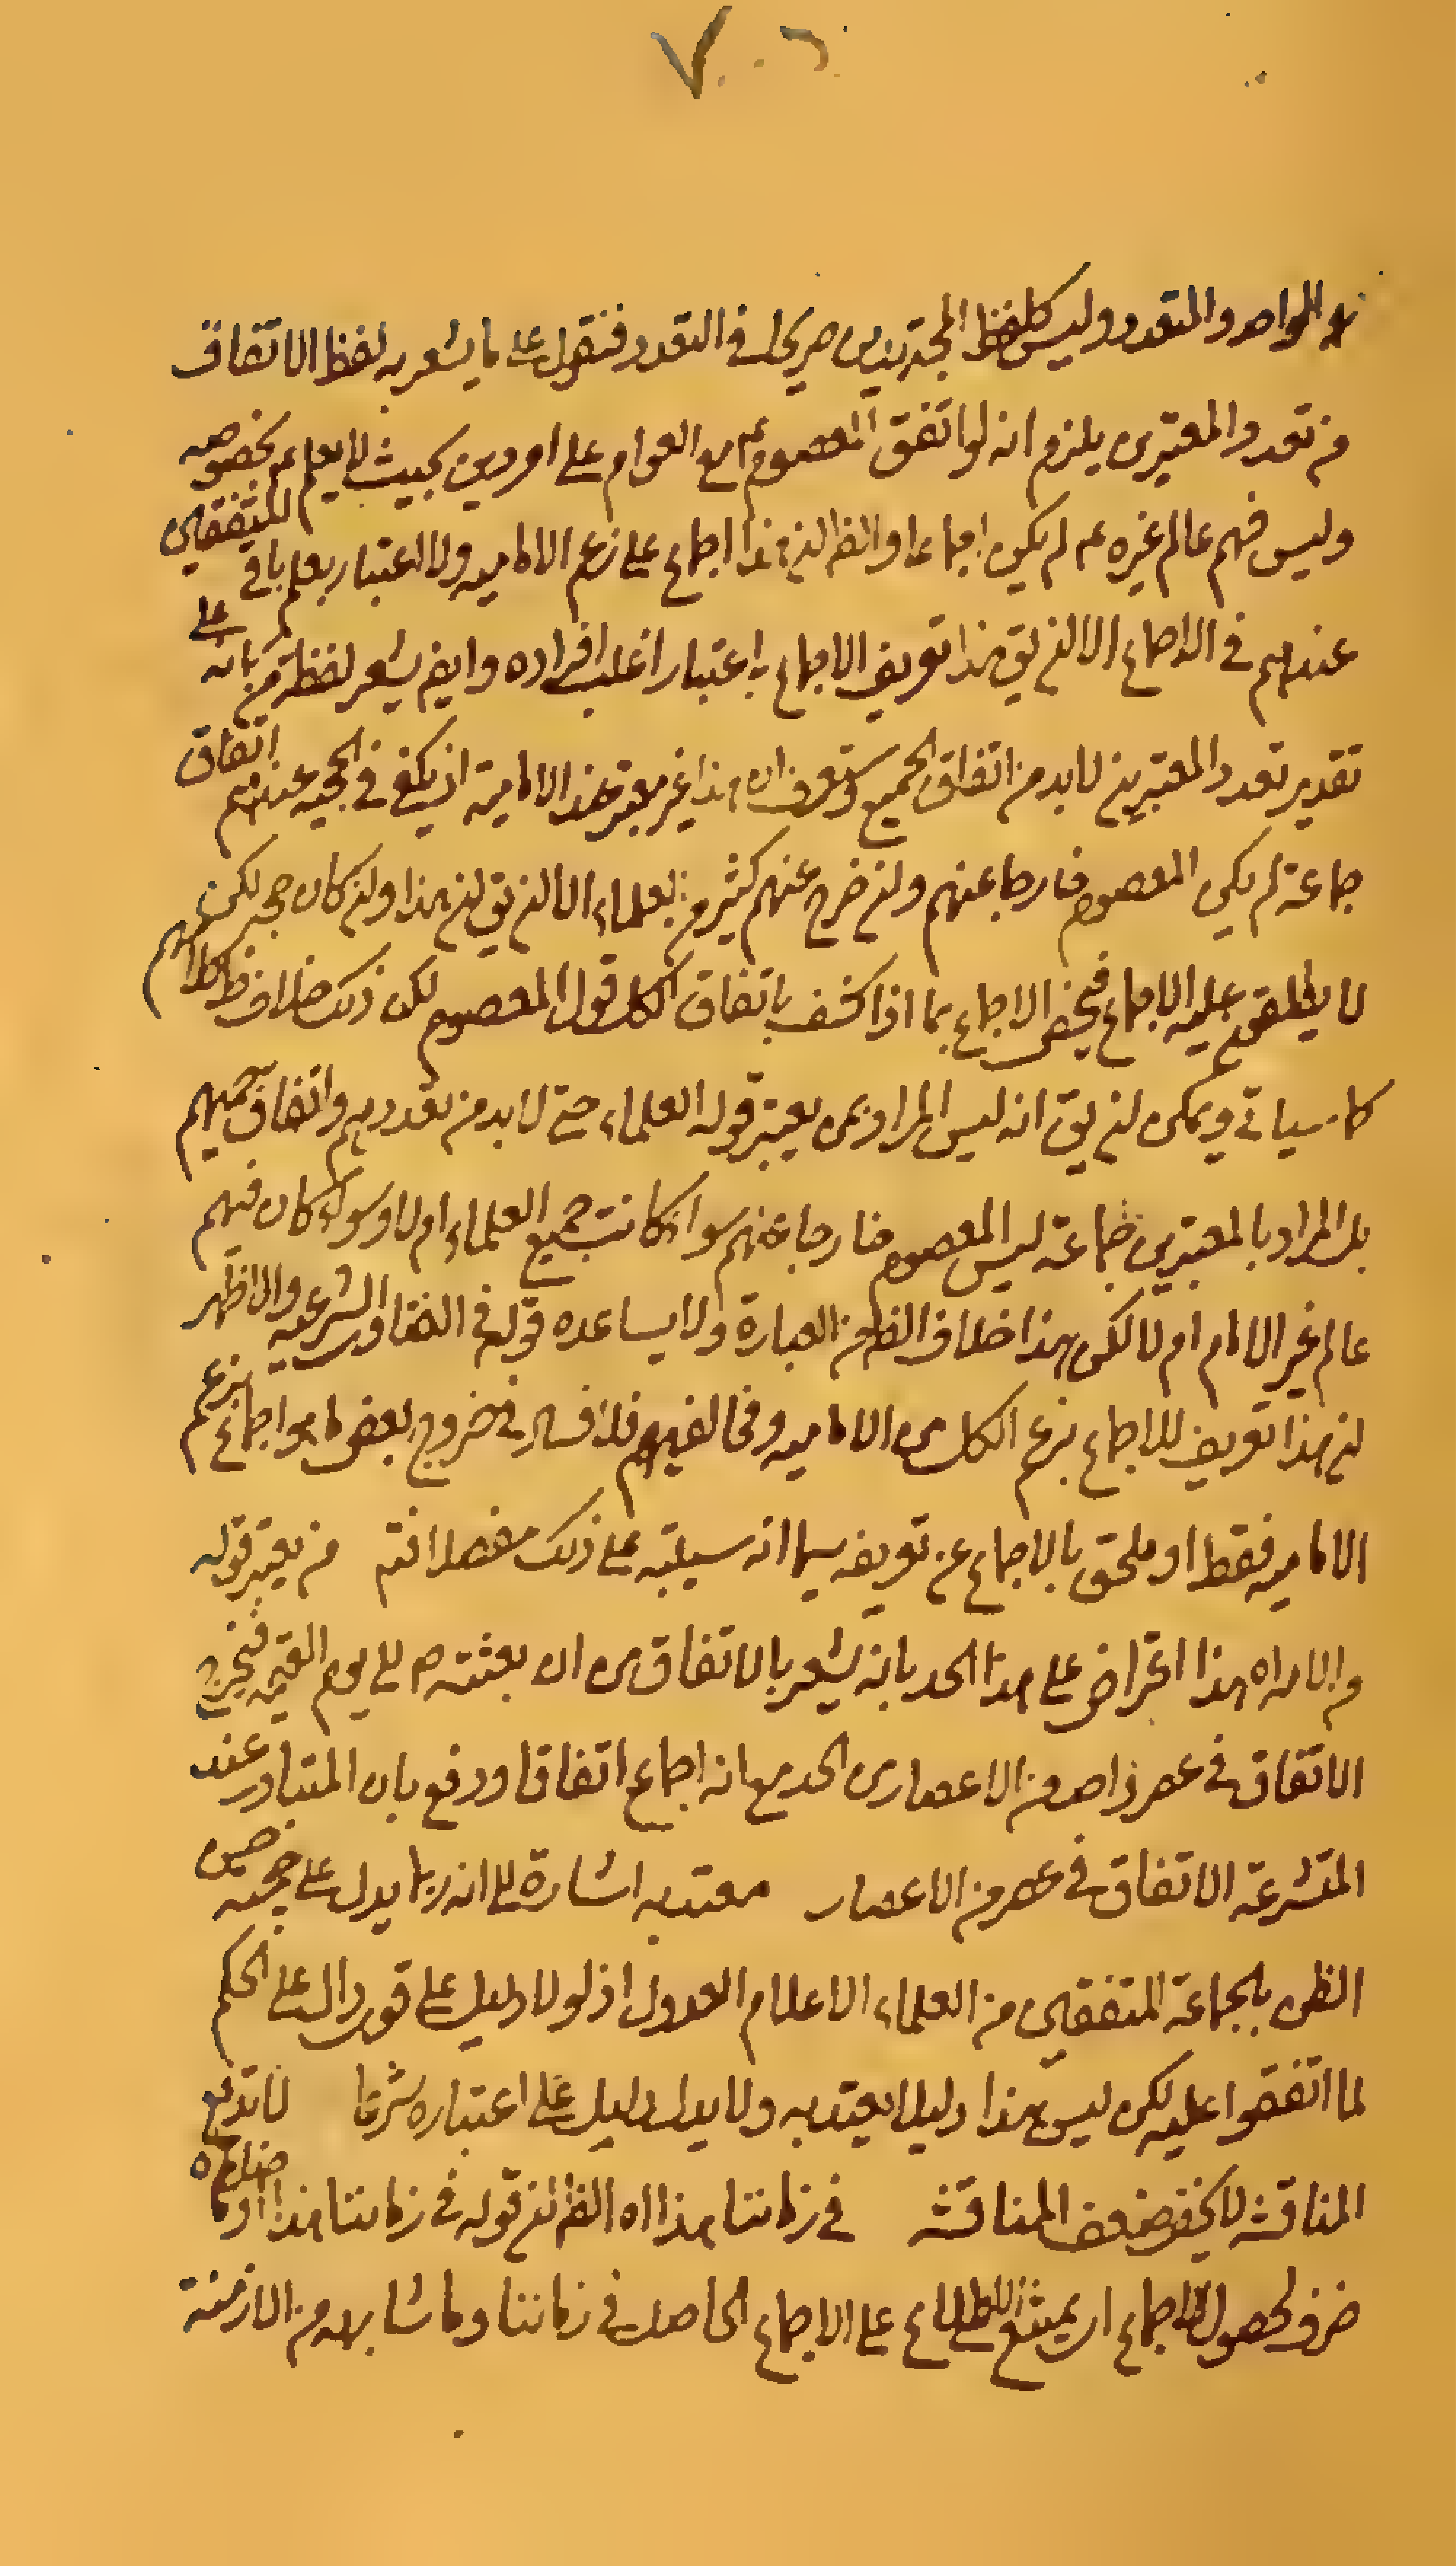 الواحد والمتعدد وليس كلفظ المجتهدين صريحا في التعدد فنقول على ما يشعر به لفظ الاتفاق
من تعدد المعتبرين يلزم انه لو اتفق المعصوم عم مع العوام على امر ديني بحيث لا يعلم عم بخصوصه
وليس فيهم عالم غيره عم لم يكن اجماعا والظ ان هذا اجماع على زعم الامامية ولا اعتبار بعلم باقي المتفقين
عندهم في الاجماع الا ان يق هذا تعريف الاجماع باعتبار اغلب افراده وايض يشعر لفظة من بانه على
تقدير تعدد المعتبرين لا بد من اتفاق الجميع وستعرف ان هذا غير معتبر عند الامامية اذ يكفي في الحجية عندهم اتفاق
جماعة لم يكن المعصوم خارجا عنهم وان خرج عنهم كثير من العلماء الا ان يق ان هذا وان كان حجة لكن
لا يطلق عليه الاجماع فيخص الاجماع بما اذا كشف باتفاق الكل قول المعصوم لكن ذلك خلاف ظ كلامهم
كما سيأتي ويمكن ان يق انه ليس المراد بمن يعتبر قوله العلماء حتى لا بد من تعددهم واتفاق جميعهم
بل المراد بالمعتبرين جماعة ليس المعصوم خارجا عنهم سواء كانت جميع العلماء ام لا وسواء كان فيهم
عالم غير الامام ام لا لكن هذا خلاف الظ من العبارة ولا يساعده قوله في الفتاوى الشرعية والاظهر
ان هذا تعريف للاجماع بزعم الكل من الامامية ومخالفيهم فلا فساد في خروج بعض ما هو اجماع بزعم
الامامية فقط او ملحق بالاجماع عن تعريفه سيما انه سينبه على ذلك مفصلا فتم من يعتبر قوله
هذا اعتراض على هذا الحد بانه يشعر بالاتفاق من ان بعثته ص الى يوم القيمة فيخرج
الاتفاق في عصر واحد من الاعصار من الحد مع انه اجماع اتفاقا ودفع بان المتبادر عند
المتشرعة الاتفاق في عصر من الاعصار معتد به اشارة الى انه ربما يدل على حجيته حسن
الظن بالجماعة المتفقين من العلماء الاعلام العدول اذ لولا دليل على قوى دال على الحكم
لما اتفقوا عليه لكن ليس هذا دليلا يعتد به ولا يدل دليل على اعتباره شرعا لا تدفع
المناقشة لا يخفى ضعف المناقشة في زماننا هذا اه الظ ان قوله في زماننا هذا او ما ضاهاه
ظرف لحصول الاجماع اى يمتنع الاطلاع على الاجماع الحاصل في زماننا وما شابهه من الازمنة